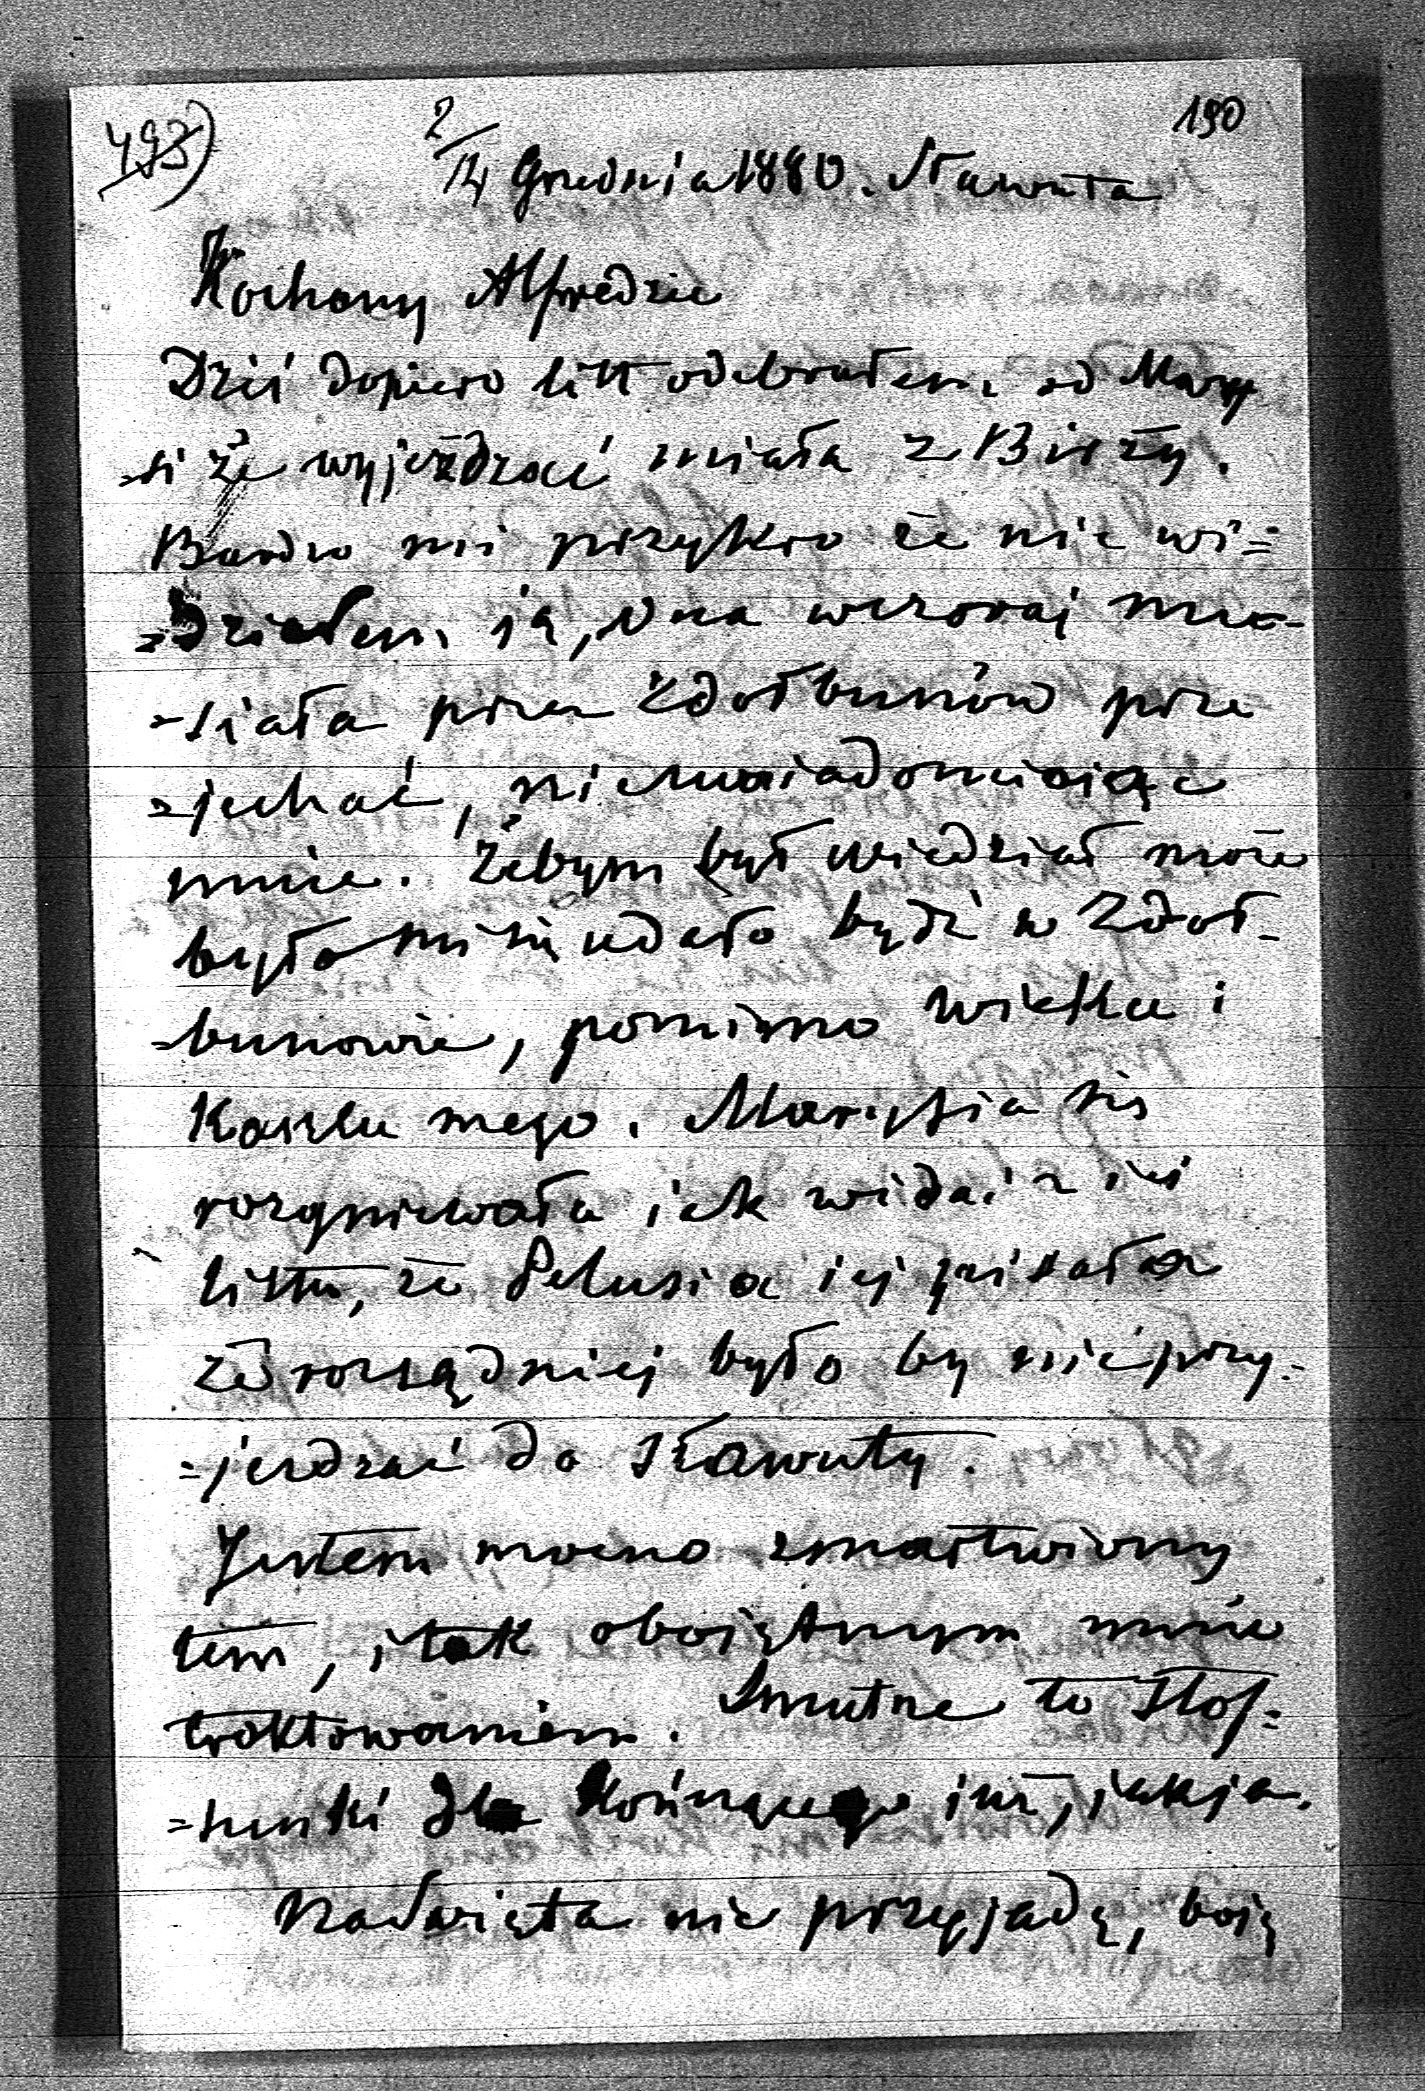 493)
190
2/14 Grudnia 1880. Sławuta
Kochany Alfredzie
Dziś dopiero list odebrałem od Mary
-si że wyjeżdzać miała z Birży.
Bardzo mi przykro że nie wi=
=działem ją, Ona wczoraj mu-
-siała przez Zdołbunów prze
=jechać, nieuwiadomiając
mnie. Żebym był wiedział może
było mi się udało bydź w Zdoł-
-bunowie, pomimo wieku i
Kaszlu mego. Marysia się
rozgniewała jak widać z jej
listu, że Pelusia jej pisała
że rozsądniej było by nieprzy-
=jezdzać do Sławuty.
Jestem mocno zmartwiony
tem, i tak obojętnym mnie
traktowaniem. Smutne to stos=
=sunki dla Kończącego już, jak ja.
Na Święta nie przyjadę, boję